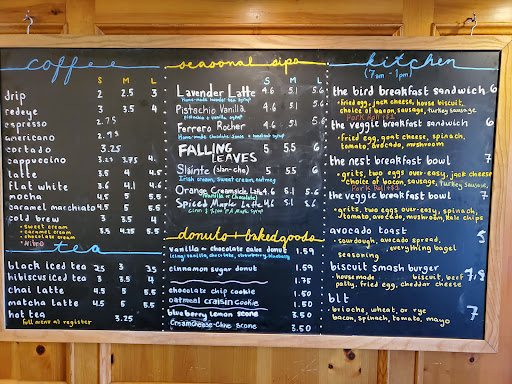 coffee
S M L
drip 2 2.5 3
redeye 3 3.5 4
espresso 2.75
americano 2.75
cortado 3.25
cappuccino 3.25 3.75 4.
latte 3.5 4 4.5
flat white 3.6 4.1 4.6
mocha 4.5 5 5.5
caramel macchiato 4.5 5 5.5
cold brew 3 3.5 4
• sweet cream
• caramel cream
• chocolate cream
3.5 4.25 5.5
• Nitro
tea
black iced tea 2.5 3 3.5
hibiscus iced tea 3 3.5 4
chai latte 4.5 5 5.5
matcha latte 4.5 5 5.5
hot tea 3.25
full menu at register
seasonal sips
S M L
Lavender Latte 4.6 5.1 5.6
Home-made lavender tea syrup
Pistachio Vanilla 4.6 5.1 5.6
pistachio & vanilla syrup
Ferrero Rocher 4.6 5.1 5.6
Home-made chocolate sauce + hazelnut syrup
FALLING LEAVES 5 5.5 6
Sláinte (slan-cha) 5 5.5 6
Irish cream, sweet cream, nutmeg
Orange Creamsicle Latte 4.6 5.1 5.6
(Vanilla or Chocolate)
Spiced Maple Latte 4.6 5.1 5.6
donuts + baked goods
vanilla or chocolate cake donut 1.59
cinnamon sugar donut 1.59
1.75
chocolate chip cookie 1.50
oatmeal craisin cookie 1.50
blueberry lemon scone 3.50
Creamcheese-Chive Scone 3.50
kitchen
(7am - 1pm)
the bird breakfast sandwich 6
• fried egg, jack cheese, house biscuit,
choice of bacon, sausage, turkey sausage
Pork Roll +$1
the veggie breakfast sandwich 6
• fried egg, goat cheese, spinach,
tomato, avocado, mushroom
the nest breakfast bowl 7
• grits, two eggs over-easy, jack cheese
• choice of bacon, sausage, Turkey Sausage,
Pork Roll +$1
the veggie breakfast bowl 7
• grits, two eggs over-easy, spinach,
tomato, avocado, mushroom, kale chips
avocado toast 5
• sourdough, avocado spread,
, everything bagel
seasoning
biscuit smash burger 7.8
• housemade biscuit, beef
patty, fried egg, cheddar cheese
blt 7
• brioche, wheat, or rye
bacon, spinach, tomato, mayo